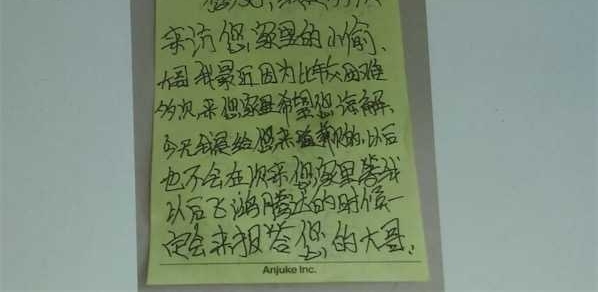 来访您家里的小偷、
大哥我最近因为比较困难
多次来您家里希望您海解、
今天我是给您来道歉的、以后
也不会在次来您家里等我
以后飞鸿腾达的时候一
定会来报答您的大哥、
Anjuke Inc.